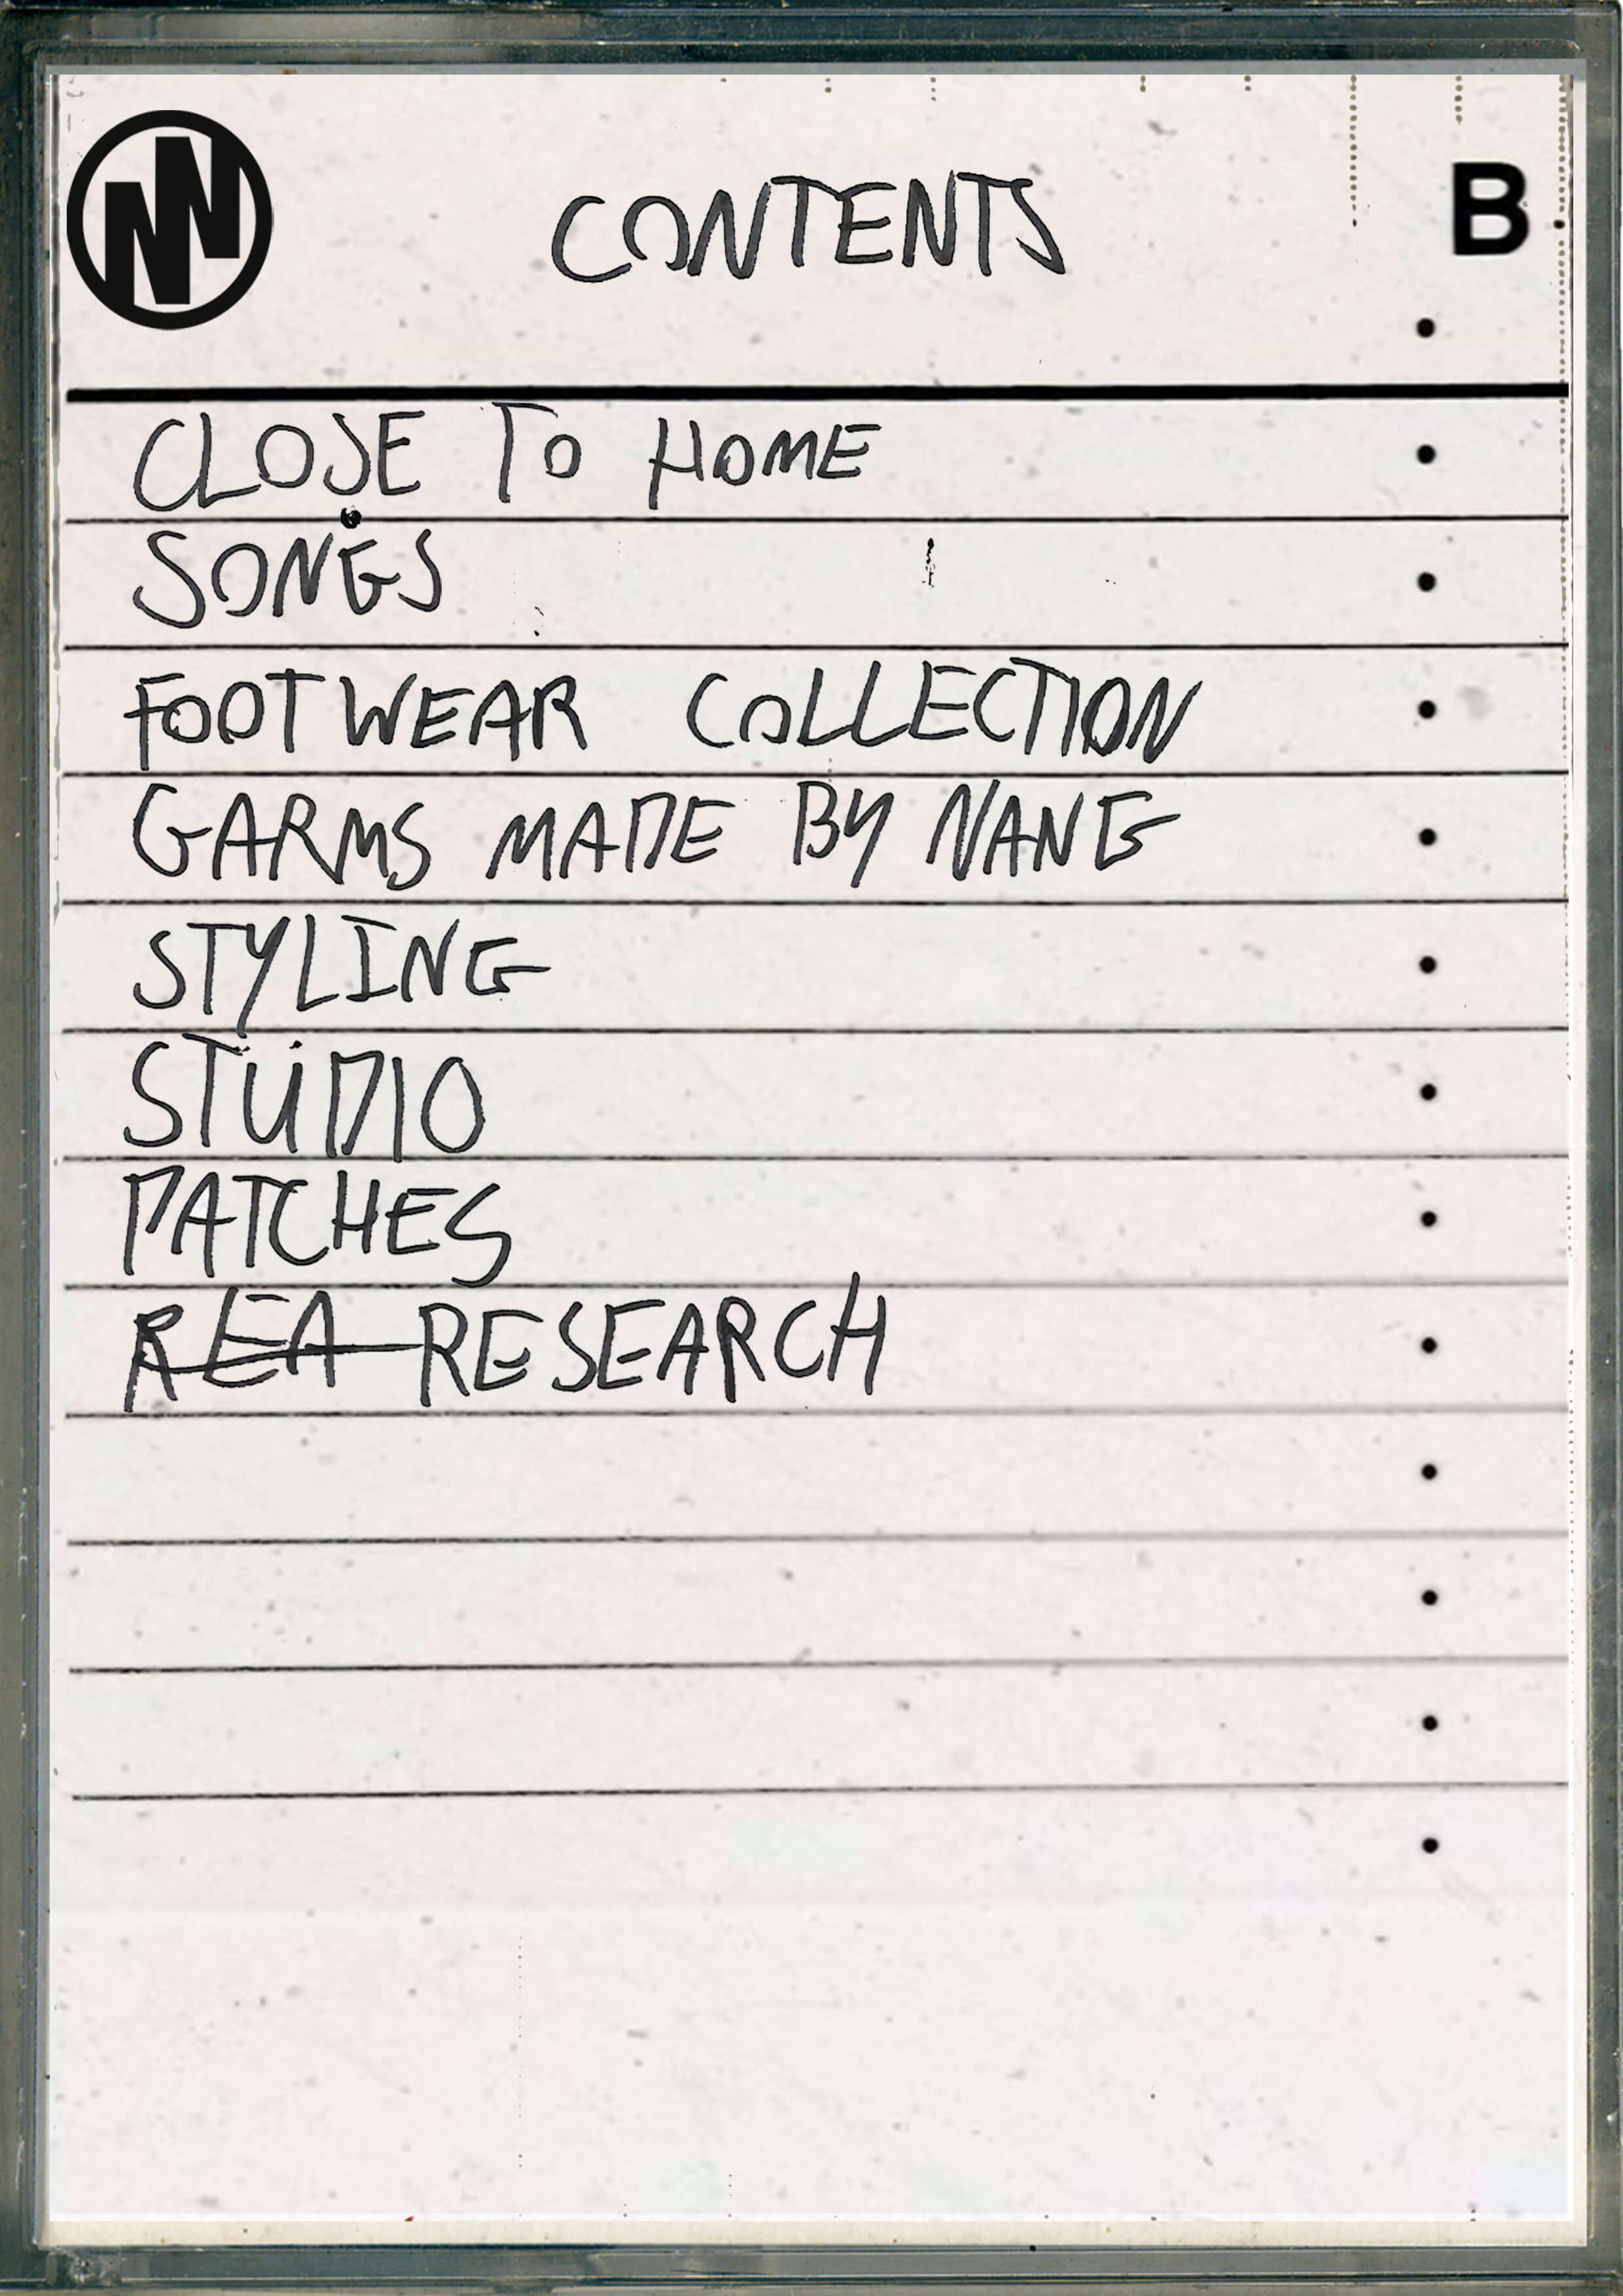 NN
CONTENTS
B
CLOSE TO HOME
SONGS
FOOTWEAR COLLECTION
GARMS MADE BY NANG
STYLING
STUDIO
PATCHES
REA RESEARCH